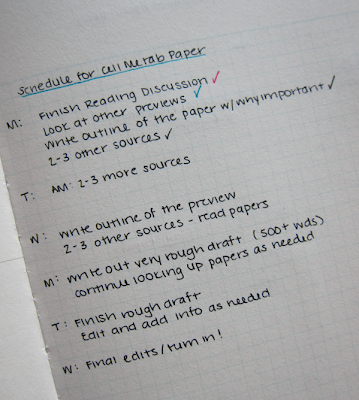 Schedule for Cell Metab Paper
M: Finish Reading Discussion ✓
Look at other previews ✓
Write outline of the paper w/why important ✓
2-3 other sources ✓
T: AM: 2-3 more sources
W: Write outline of the preview
2-3 other sources - read papers
M: Write out very rough draft (500+ wds)
continue looking up papers as needed
T: Finish rough draft
Edit and add info as needed
W: Final edits/turn in!